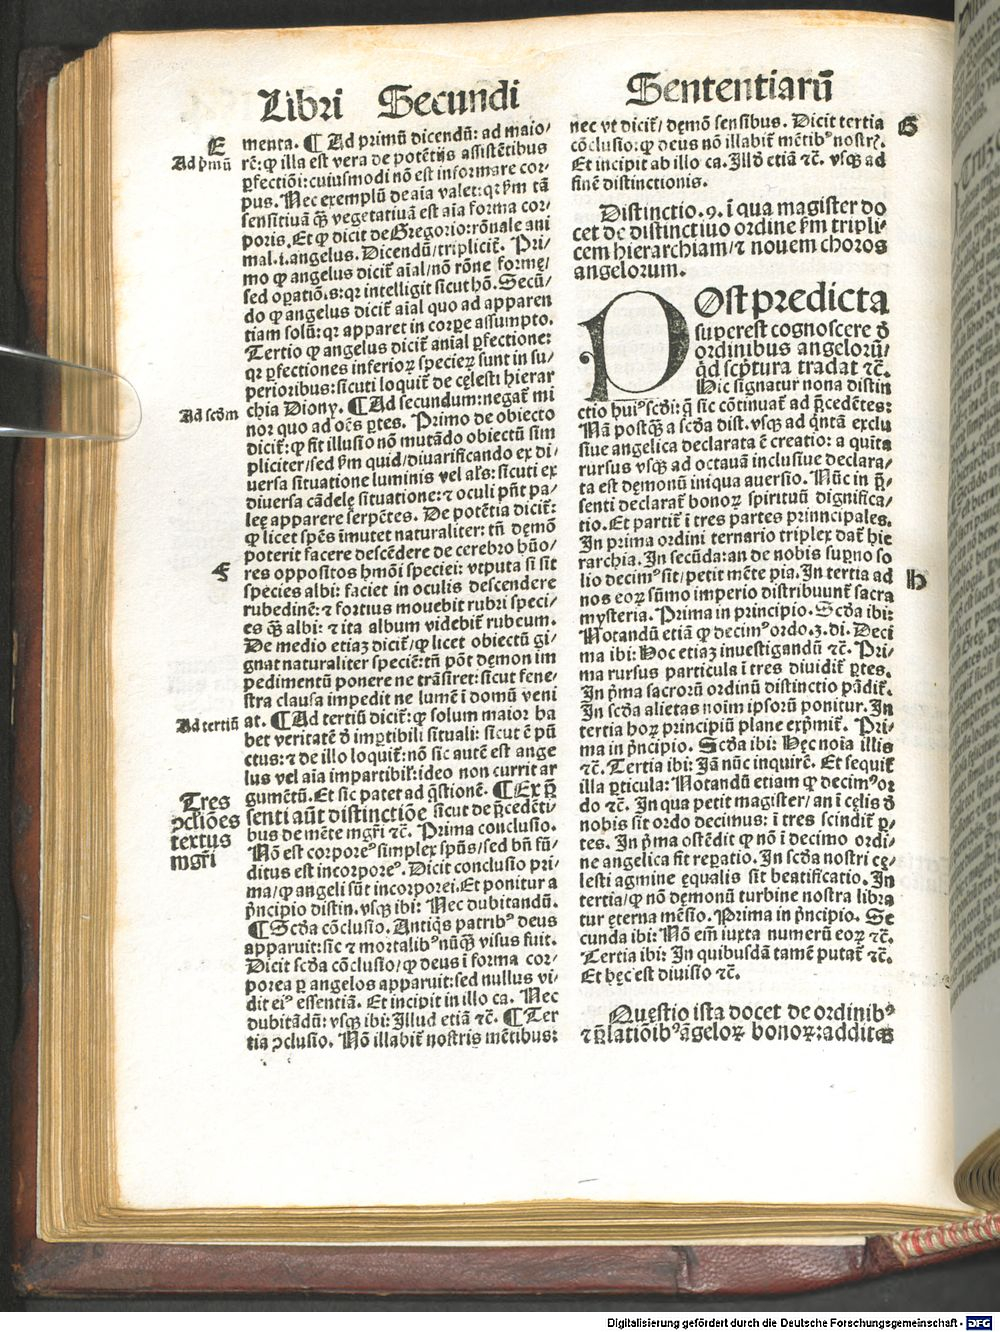 Libri Secundi
Sententiarū
E
Ad pͥmū
menta. ¶ Ad primū dicendū: ad maio/
rē: ꝙ illa est vera de potētijs assistētibus
ꝑfectiōi: cuiusmodi nō est informare cor/
pus. Nec exemplū de aīa valet: qꝛ ẜm tā
sensitiuā ꝙ̄ vegetatiuā est aīa forma cor/
poris. Et ꝙ dicit de Gregorio: rōnale ani
mal .i. angelus. Dicendū/ tripliciť. Pri/
mo ꝙ angelus diciť aīal/ nō rōne formę/
sed oꝑatiōis: qꝛ intelligit sicut hō. Secū/
do ꝙ angelus diciť aīal quo ad apparen
tiam solū: qꝛ apparet in corꝑe assumpto.
Tertio ꝙ angelus diciť anīal ꝑfectione:
qꝛ ꝑfectiones inferioꝝ specieꝝ sunt in su/
perioribus: sicuti loquiť de cęlesti hierar
Ad scd̄m
chia Diony. ¶ Ad secundum: negať mi
nor quo ad oēs ꝑtes. Primo de obiecto
diciť: ꝙ sit illusio nō mutādo obiectū sim
pliciter/ sed ẜm quid/ diuarificando ex di/
uersa situatione luminis vel als̄: sicuti ex
diuersa cādelę situatione: ⁊ oculi pn̄t pa/
leę apparere serpētes. De potētia diciť:
ꝙ licet spēs imutet naturaliter: tn̄ dęmō
poterit facere descēdere de cerebro hūo/
F
res oppositos hmōi speciei: vtputa si sit
species albi: faciet in oculis descendere
rubedinē: ⁊ fortius mouebit rubri speci/
es ꝙ̄ albi: ⁊ ita album videbiť rubeum.
De medio etiaꝫ diciť/ ꝙ licet obiectū gi/
gnat naturaliter speciē: tn̄ pōt dęmon im
pedimentū ponere ne trāsiret: sicut fene/
stra clausa impedit ne lumē ī domū veni
Ad tertiū
at. ¶ Ad tertiū diciť: ꝙ solum maior ha
bet veritatē ð imꝑtibili situali: sicut ē pū
ctus: ⁊ de illo loquiť: nō sic autē est ange
lus vel aīa impartibil̛: ideo non currit ar
gumētū. Et sic patet ad q̄stionē. ¶ Ex p̄
Tres
ꝯcliōes
textus
mgr̄i
senti aūt distinctiōe sicut de p̄cedēti/
bus de mēte mgr̄i ⁊c̄. Prima conclusio.
Nō est corpore⁹ simplex spūs/ sed bn̄ sū/
ditus est incorpore⁹. Dicit conclusio pri/
ma/ ꝙ angeli sūt incorporei. Et ponitur a
pͥncipio distin. vsqꝫ ibi: Nec dubitandū.
¶ Scd̄a cōclusio. Antiqͥs patrib⁹ deus
apparuit: sic ⁊ mortalib⁹ nūꝙ̄ visus fuit.
Dicit scd̄a cōclusio/ ꝙ deus ī forma cor/
porea ꝑ angelos apparuit: sed nullus vi/
dit ei⁹ essentiā. Et incipit in illo ca. Nec
dubitādū: vsqꝫ ibi: Illud etiā ⁊c̄. ¶ Ter
tia ꝯclusio. Nō illabiť nostris mētibus:
nec vt diciť/ dęmō sensibus. Dicit tertia
G
cōclusio: ꝙ deus nō illabiť mētib⁹ nostrꝭ.
Et incipit ab illo ca. Illð etiā ⁊c̄. vsqꝫ ad
finē distinctionis.
Distinctio .9. ī qua magister do
cet de distinctiuo ordine ẜm tripli/
cem hierarchiam/ ⁊ nouem choros
angelorum.
POst predicta
superest cognoscere ð
ordinibus angelorū/
qͥd scpͥtura tradat ⁊c̄.
Hic signatur nona distin
ctio hui⁹ scd̄i: q̄ sic cōtinuať ad p̄cedētes:
Nā postꝙ̄ a scd̄a dist. vsqꝫ ad qͥntā exclu
siue angelica declarata ē creatio: a quīta
rursus vsqꝫ ad octauā inclusiue declara/
ta est dęmonū iniqua auersio. Nūc in p̄/
senti declarať bonoꝝ spirituū dignifica/
tio. Et partiť ī tres partes prinncipales.
In prima ordini ternario triplex dať hie
rarchia. In secūda: an de nobis suꝑno so
h
lio decim⁹ sit/ petit mēte pia. In tertia ad
nos eoꝝ sūmo imperio distribuunť sacra
mysteria. Prima in principio. Scd̄a ibi:
Notandū etiā ꝙ decim⁹ ordo. 3. di. Deci
ma ibi: Hoc etiaꝫ inuestigandū ⁊c̄. Pri/
ma rursus particula ī tres diuidiť ꝑtes.
In pͥma sacrorū ordinū distinctio pādiť.
In scd̄a alietas noīm ipsorū ponitur. In
tertia hoꝝ principiū plane expͥmiť. Pri/
ma in pͥncipio. Scd̄a ibi: Hęc noīa illis
⁊c̄. Tertia ibi: Iā nūc inquirē. Et sequiť
illa ꝑticula: Notandū etiam ꝙ decim⁹ or
do ⁊c̄. In qua petit magister/ an ī cęlis ð
nobis sit ordo decimus: ī tres scindiť ꝑ/
tes. In pͥma ostēdit ꝙ nō ī decimo ordi/
ne angelica fit reꝑatio. In scd̄a nostri cę/
lesti agmine ęqualis sit beatificatio. In
tertia/ ꝙ nō dęmonū turbine nostra libra
tur ęterna mēsio. Prima in pͥncipio. Se
cunda ibi: Nō em̄ iuxta numerū eoꝝ ⁊c̄.
Tertia ibi: In quibusdā tamē putať ⁊c̄.
Et hęc est diuisio ⁊c̄.
Quęstio ista docet de ordinib⁹
⁊ p̄latiōib⁹ āgeloꝝ bonoꝝ: addit⁊
Digitalisierung gefördert durch die Deutsche Forschungsgemeinschaft - DFG